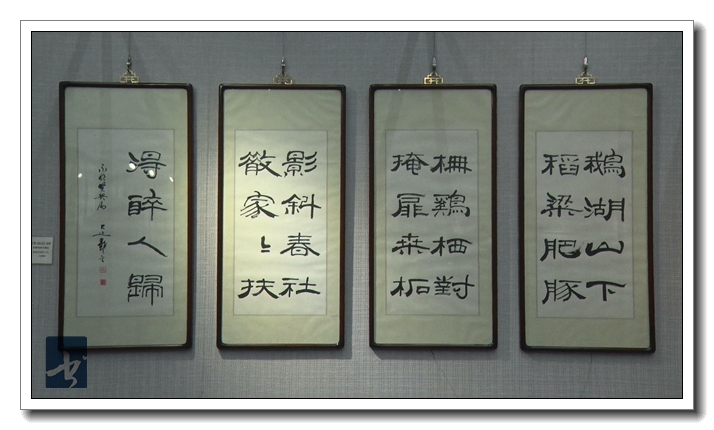 鵝湖山下
稻粱肥豚
柵鷄栖對
掩扉桒柘
影斜春社
散家〻扶
得醉人歸